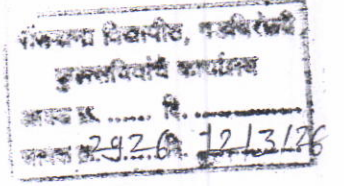 विद्यापीठ, गडचिरोली
कुलसचिवांचे कार्यालय
आवक क्र. ...... दि. ..............
जावक क्र. 2926 दि. 12/3/26